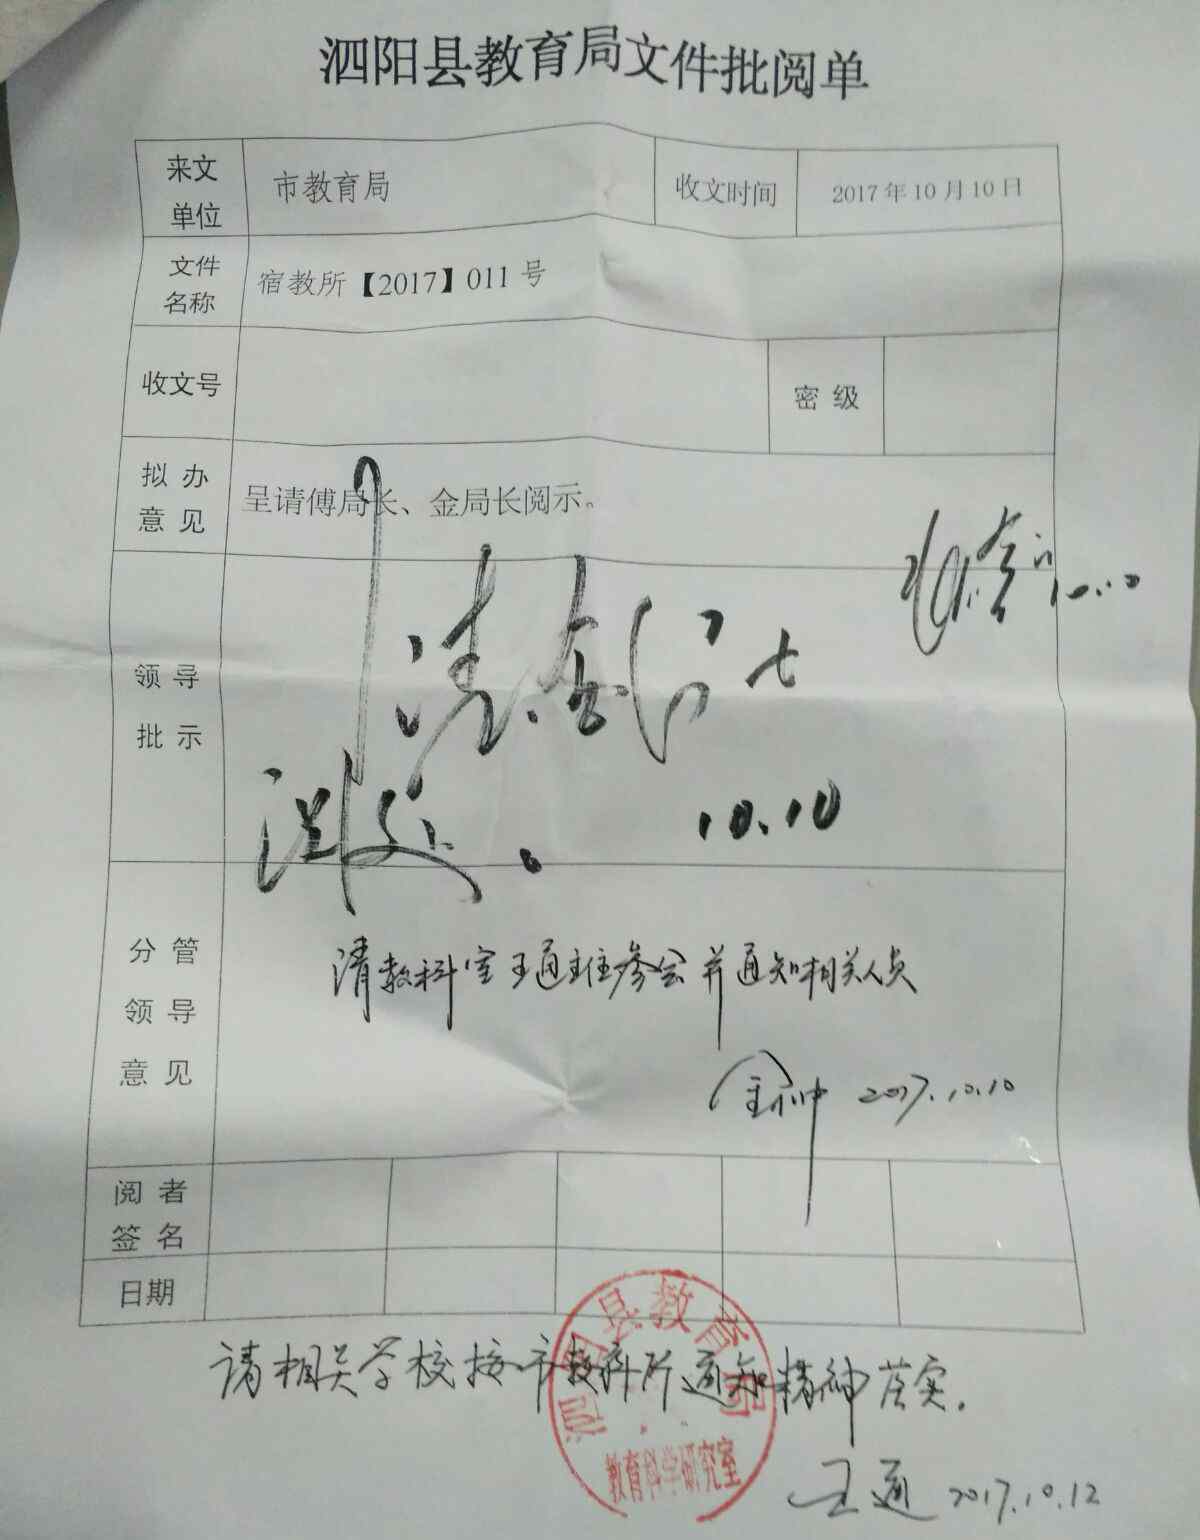 泗阳县教育局文件批阅单
来文单位 市教育局 收文时间 2017年10月10日
文件名称 宿教所【2017】011号
收文号 密级
拟办意见 呈请傅局长、金局长阅示。
10.10
领导批示
请金局长
阅处。 10.10
分管领导意见
请教科室王通主任参会并通知相关人员
2017.10.10
阅者签名
日期
请相关学校按市教科所通知精神落实。
王通 2017.10.12
泗阳县教育局
教育科学研究室